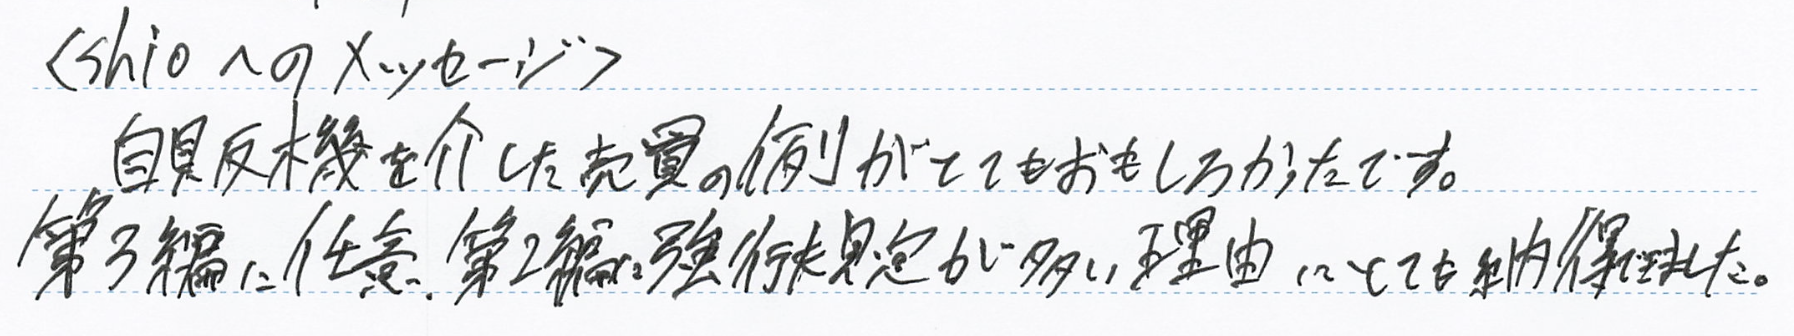 <shioへのメッセージ>
自販機を介した売買の例がとてもおもしろかったです。
第3編に任意、第2編に強行規定が多い理由にとても納得できました。